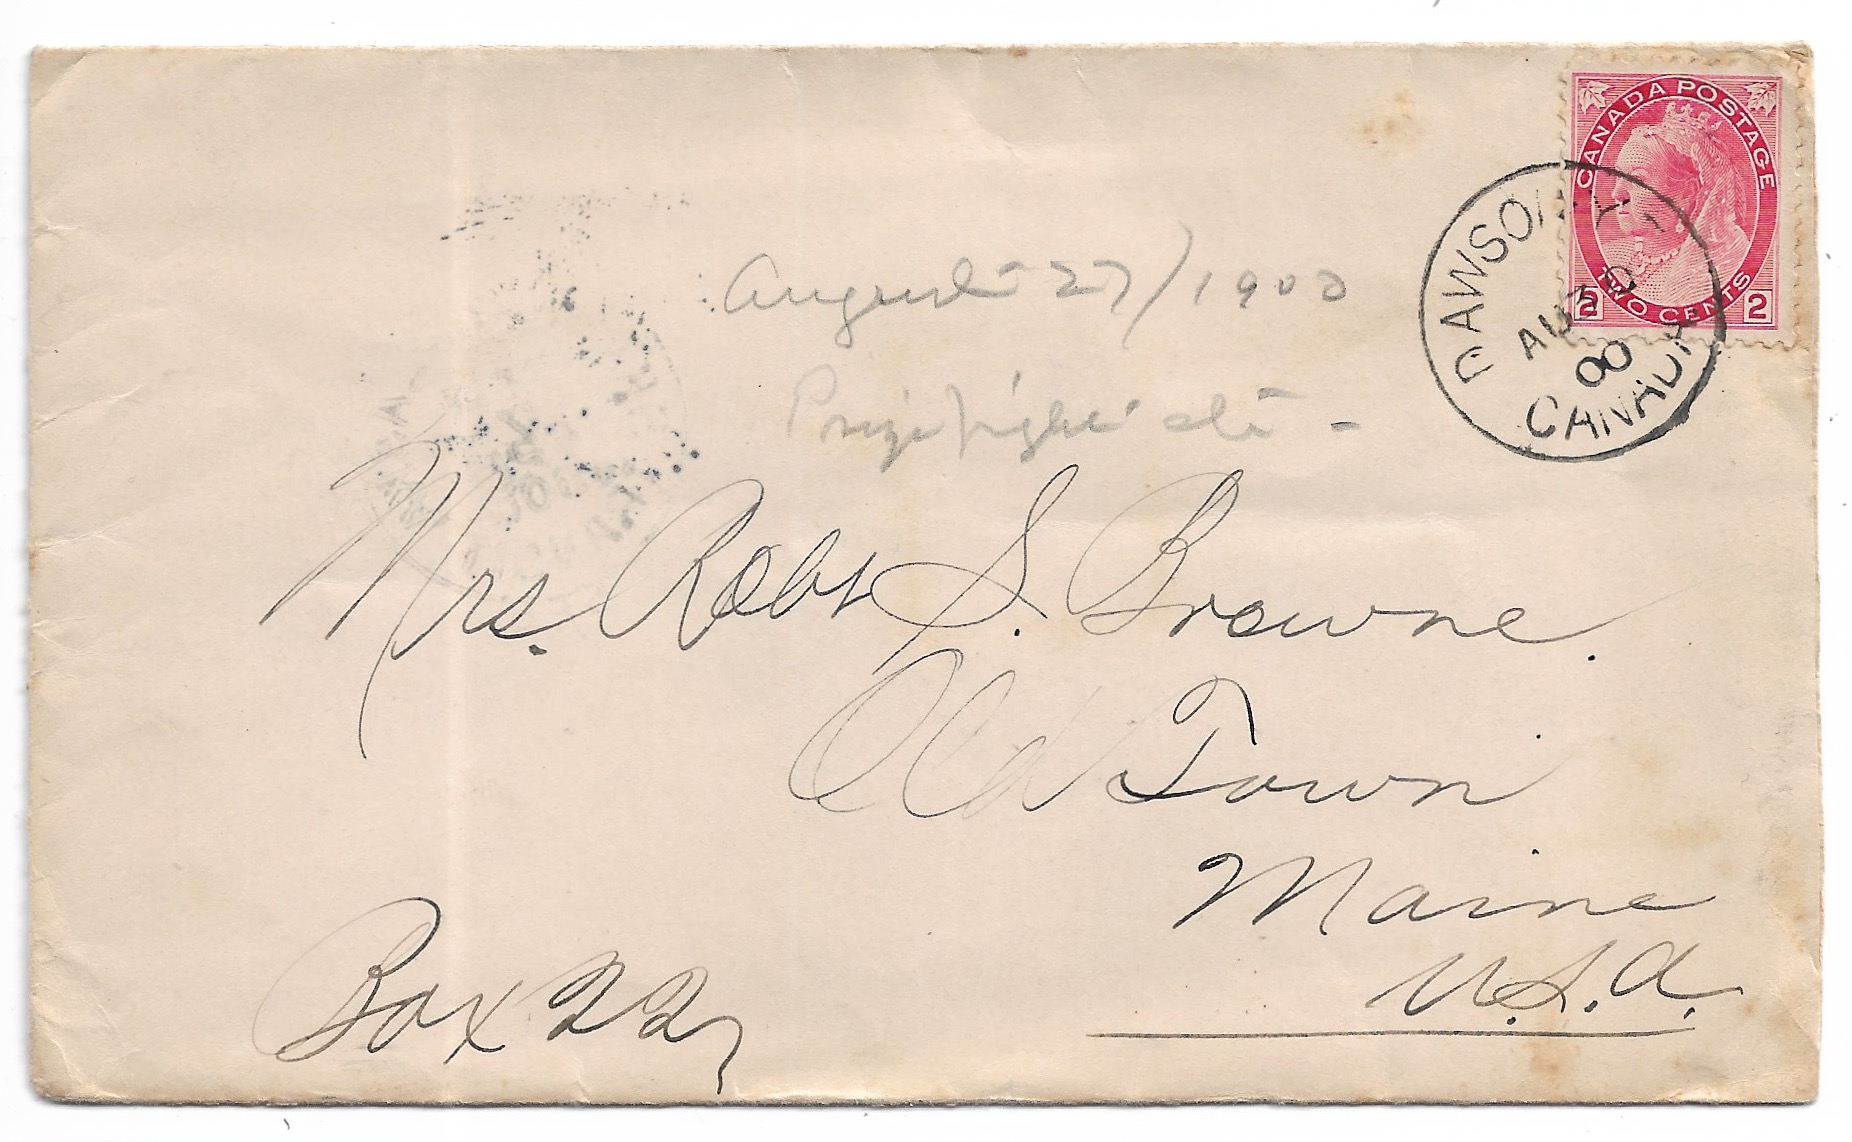 CANADA POSTAGE
2 TWO CENTS 2
DAWSON Y T
AU 30
00
CANADA
August 27/1900
Prizefight etc -
Mrs. Robt S. Browne.
Old Town
Maine
U.S.A.
Box 22